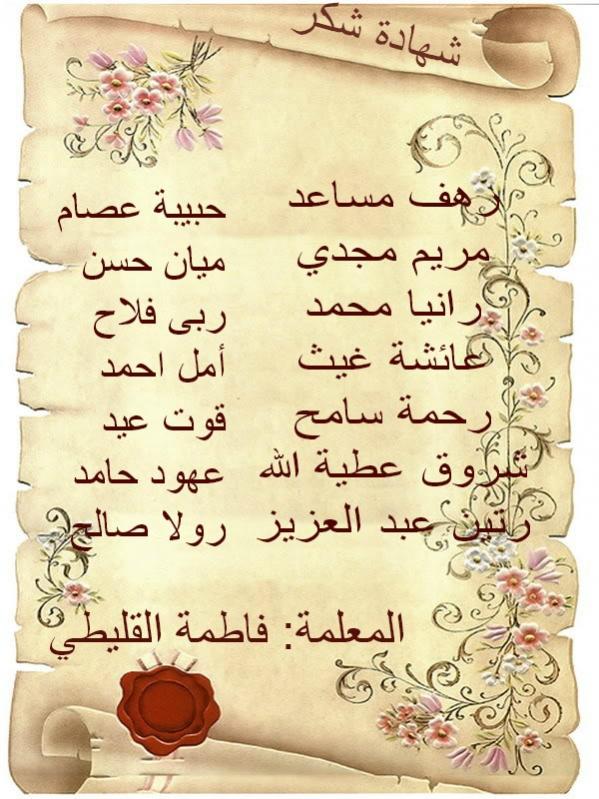 شهادة شكر
رهف مساعد
مريم مجدي
رانيا محمد
عائشة غيث
رحمة سامح
شروق عطية الله
رتين عبد العزيز
حبيبة عصام
ميان حسن
ربى فلاح
أمل احمد
قوت عيد
عهود حامد
رولا صالح
المعلمة: فاطمة القليطي